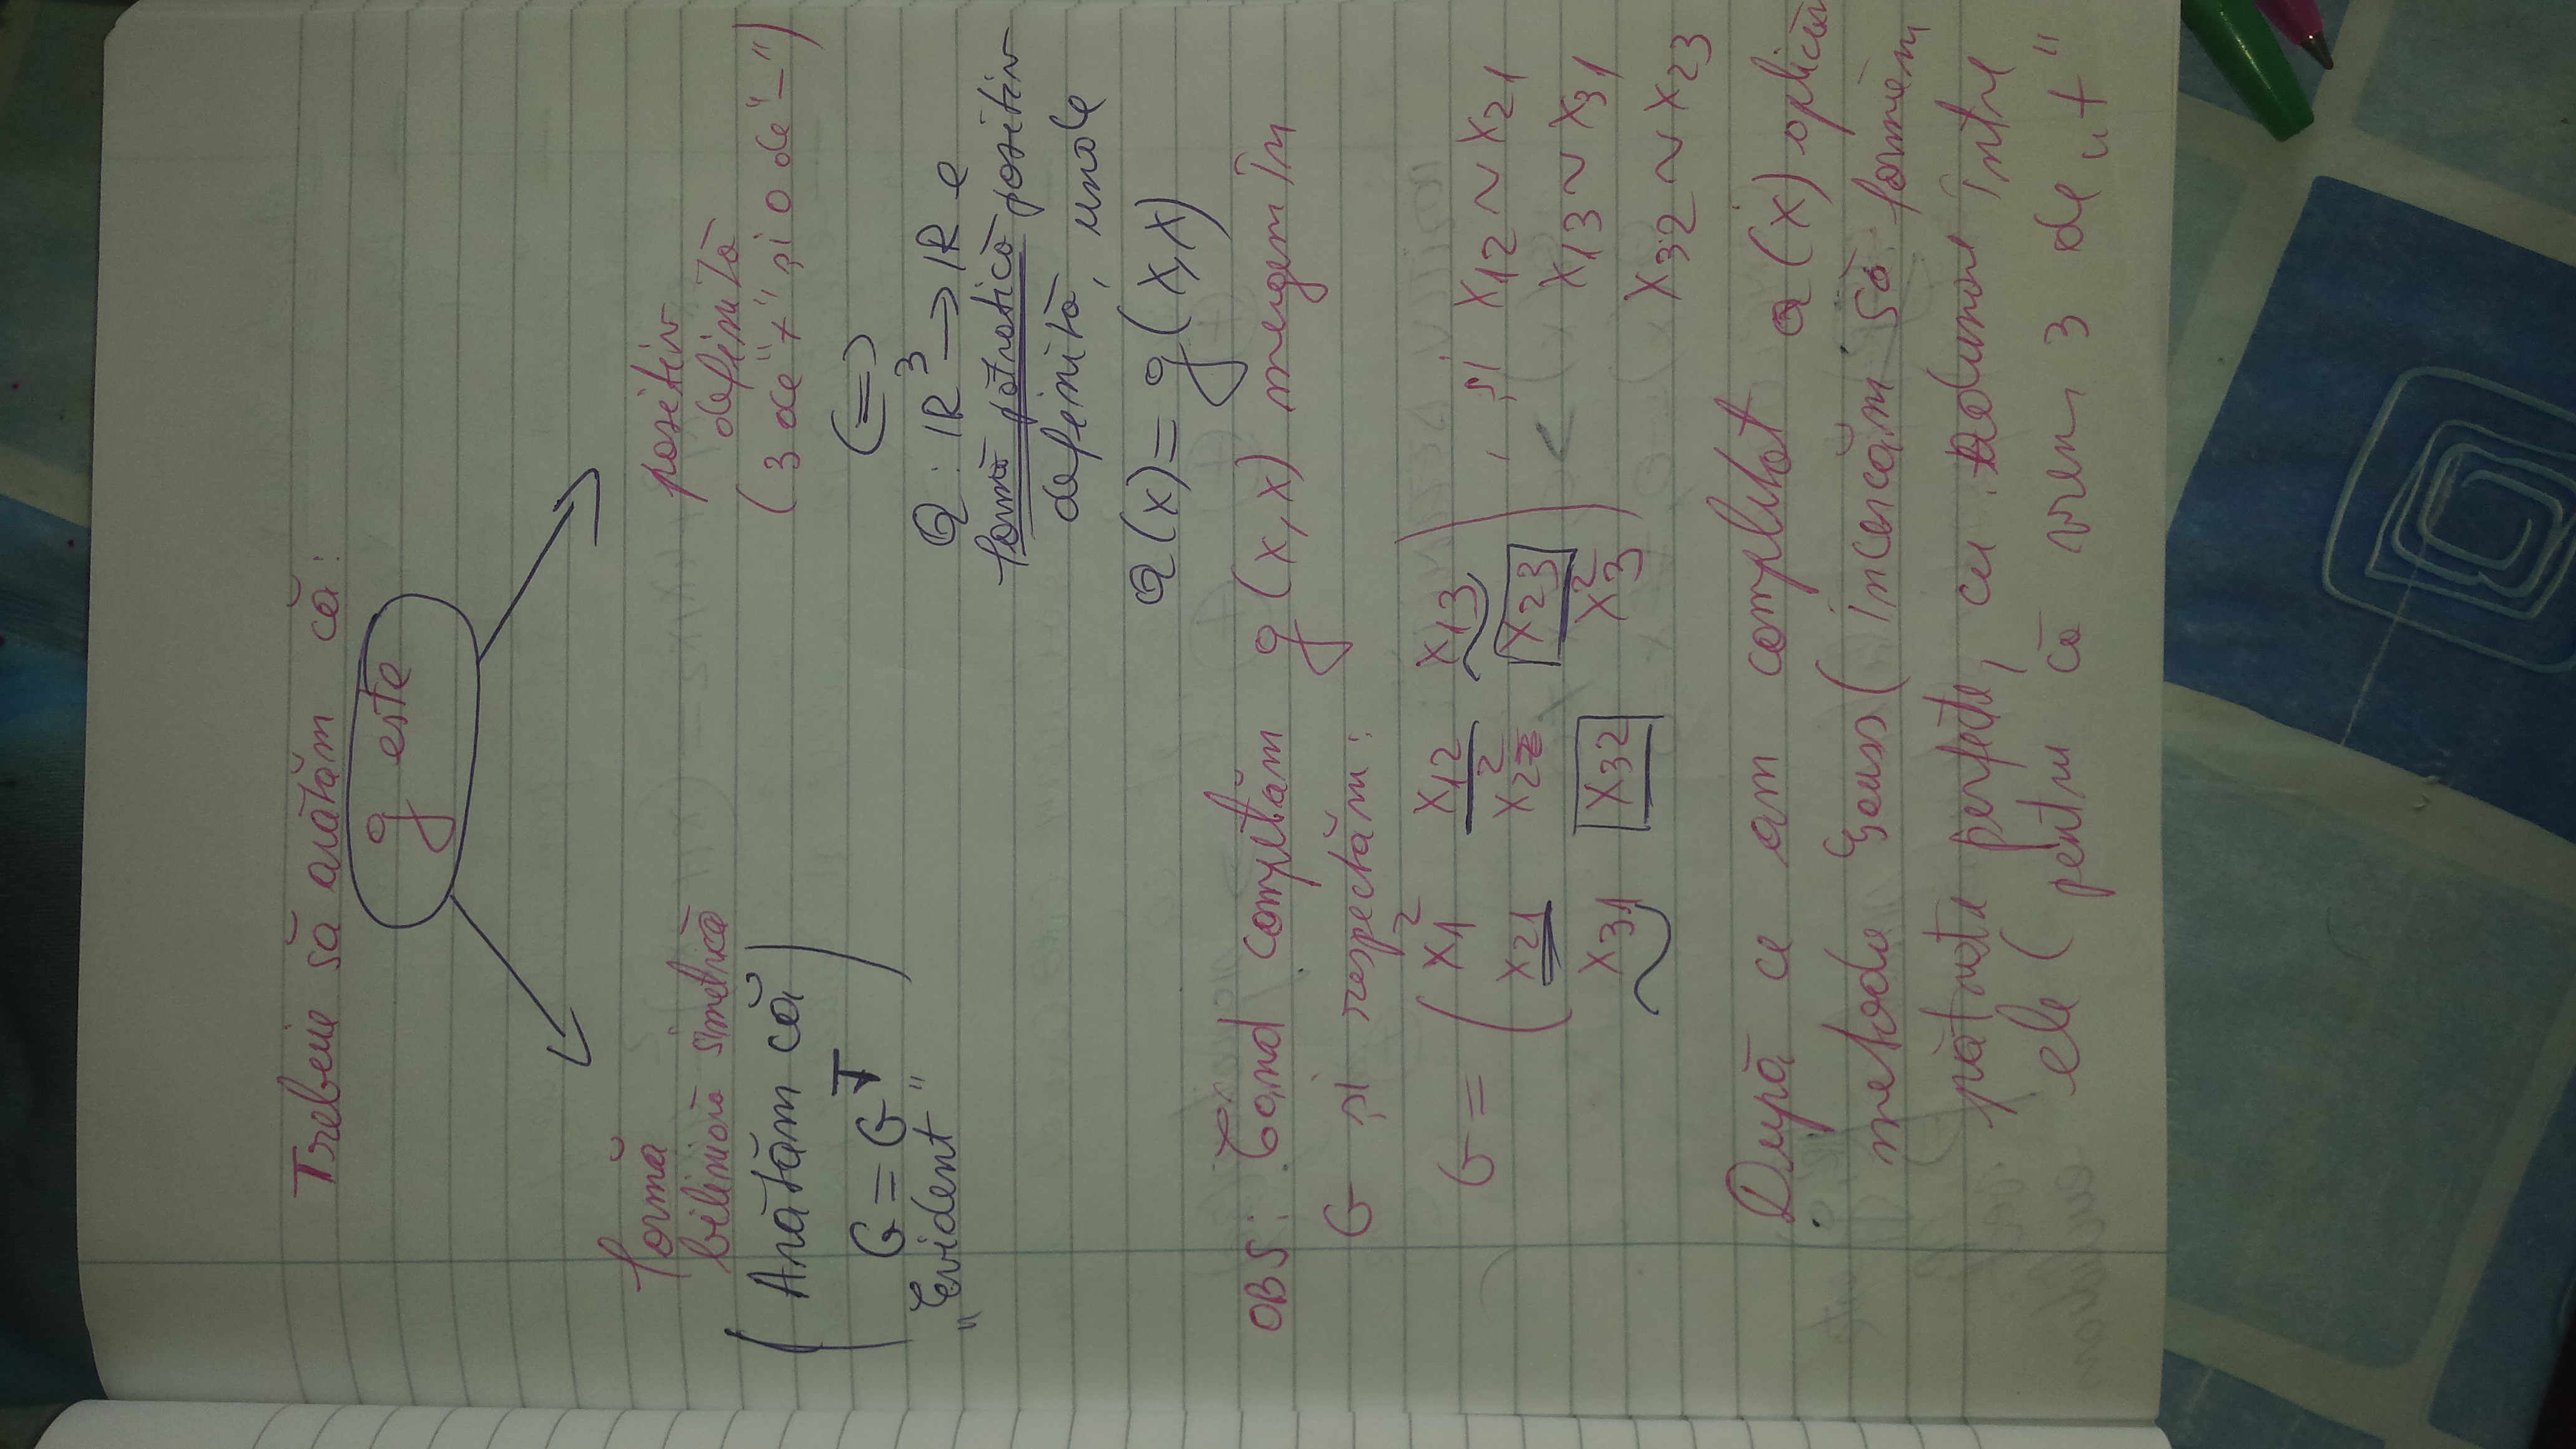 Trebuie să arătăm că:
g este
formă
biliniară simetrică
(Arătăm că
G = G^T)
„Evident”
pozitiv
definită
(3 de "+" și 0 de "-")
(=)
Q : IR^3 → IR e
formă pătratică pozitiv
definită, unde
Q(x) = g(x,x)
OBS: Cand completăm g(x,x) mergem în
G și respectăm:
G = ( x1^2 x12 x13
x21 x2^2 x23
x31 x32 x3^2 ) , și x12 ~ x21
x13 ~ x31
x32 ~ x23
După ce am completat Q(x) aplicăm
metoda Gauss (încercăm să formăm
pătrate perfecte, cu adunare între
ele (pentru că vrem 3 de „+”